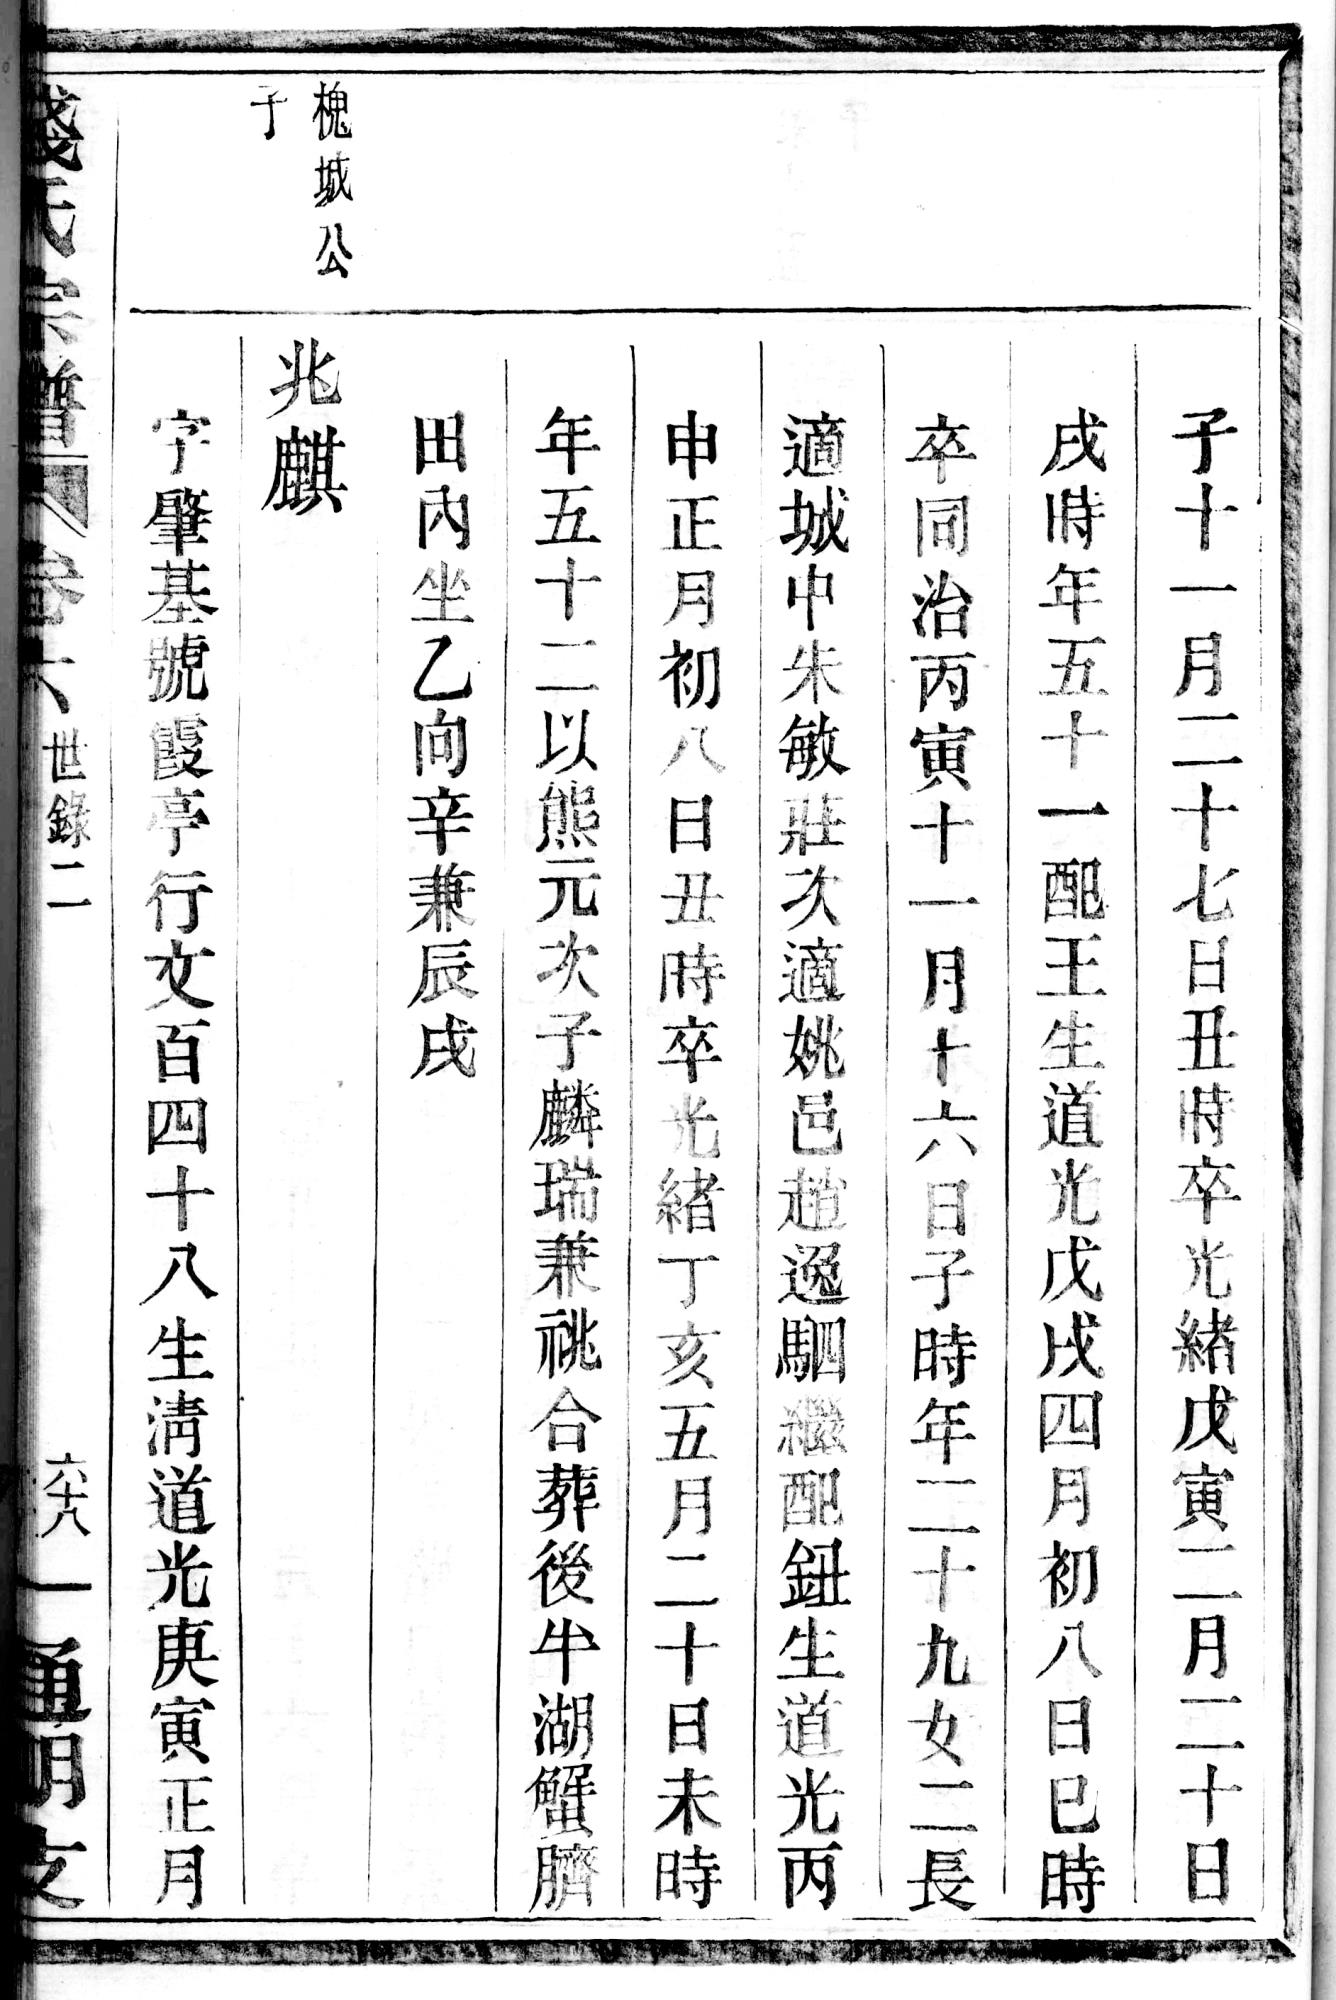 子十一月二十七日丑時卒光緒戊寅二月二十日
戌時年五十一配王生道光戊戌四月初八日巳時
卒同治丙寅十一月十六日子時年二十九女二長
適城中朱敏莊次適姚邑趙逸駟繼配鈕生道光丙
申正月初八日丑時卒光緒丁亥五月二十日未時
年五十二以熊元次子麟瑞兼祧合葬後牛湖蟹臍
田內坐乙向辛兼辰戌
槐城公
子
兆麒
字肇基號霞亭行文百四十八生清道光庚寅正月
錢氏宗譜
卷六
世錄二
六十八
通明支